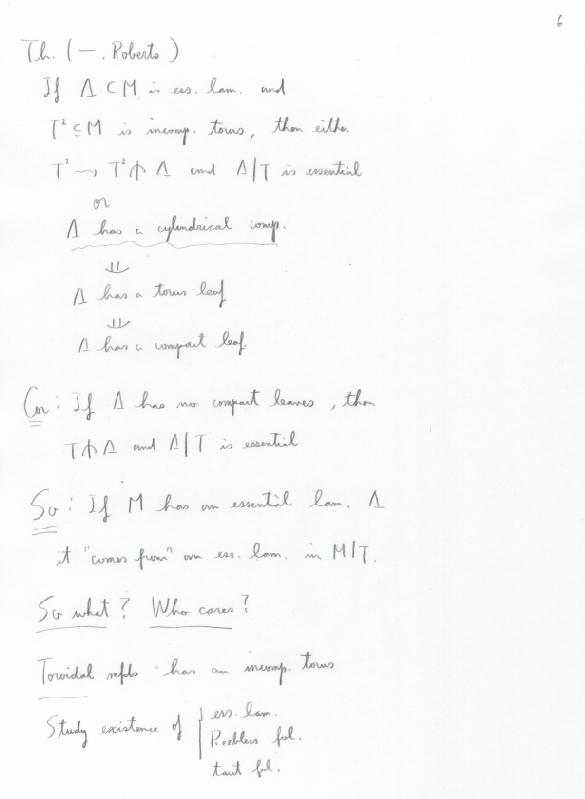 6
Th. (—, Roberts)
If Λ ⊂ M is ess. lam. and
T² ⊆ M is incomp. torus, then either
T² ⇝ T² ⋔ Λ and Λ|T is essential
or
Λ has a cylindrical comp.
⇓
Λ has a torus leaf
⇓
Λ has a compact leaf.
Cor: If Λ has no compact leaves, then
T ⋔ Λ and Λ|T is essential
So: If M has an essential lam. Λ
it "comes from" an ess. lam. in M|T.
So what? Who cares?
Toroidal mfds has an incomp. torus
Study existence of { ess. lam.
Reebless fol.
taut fol.